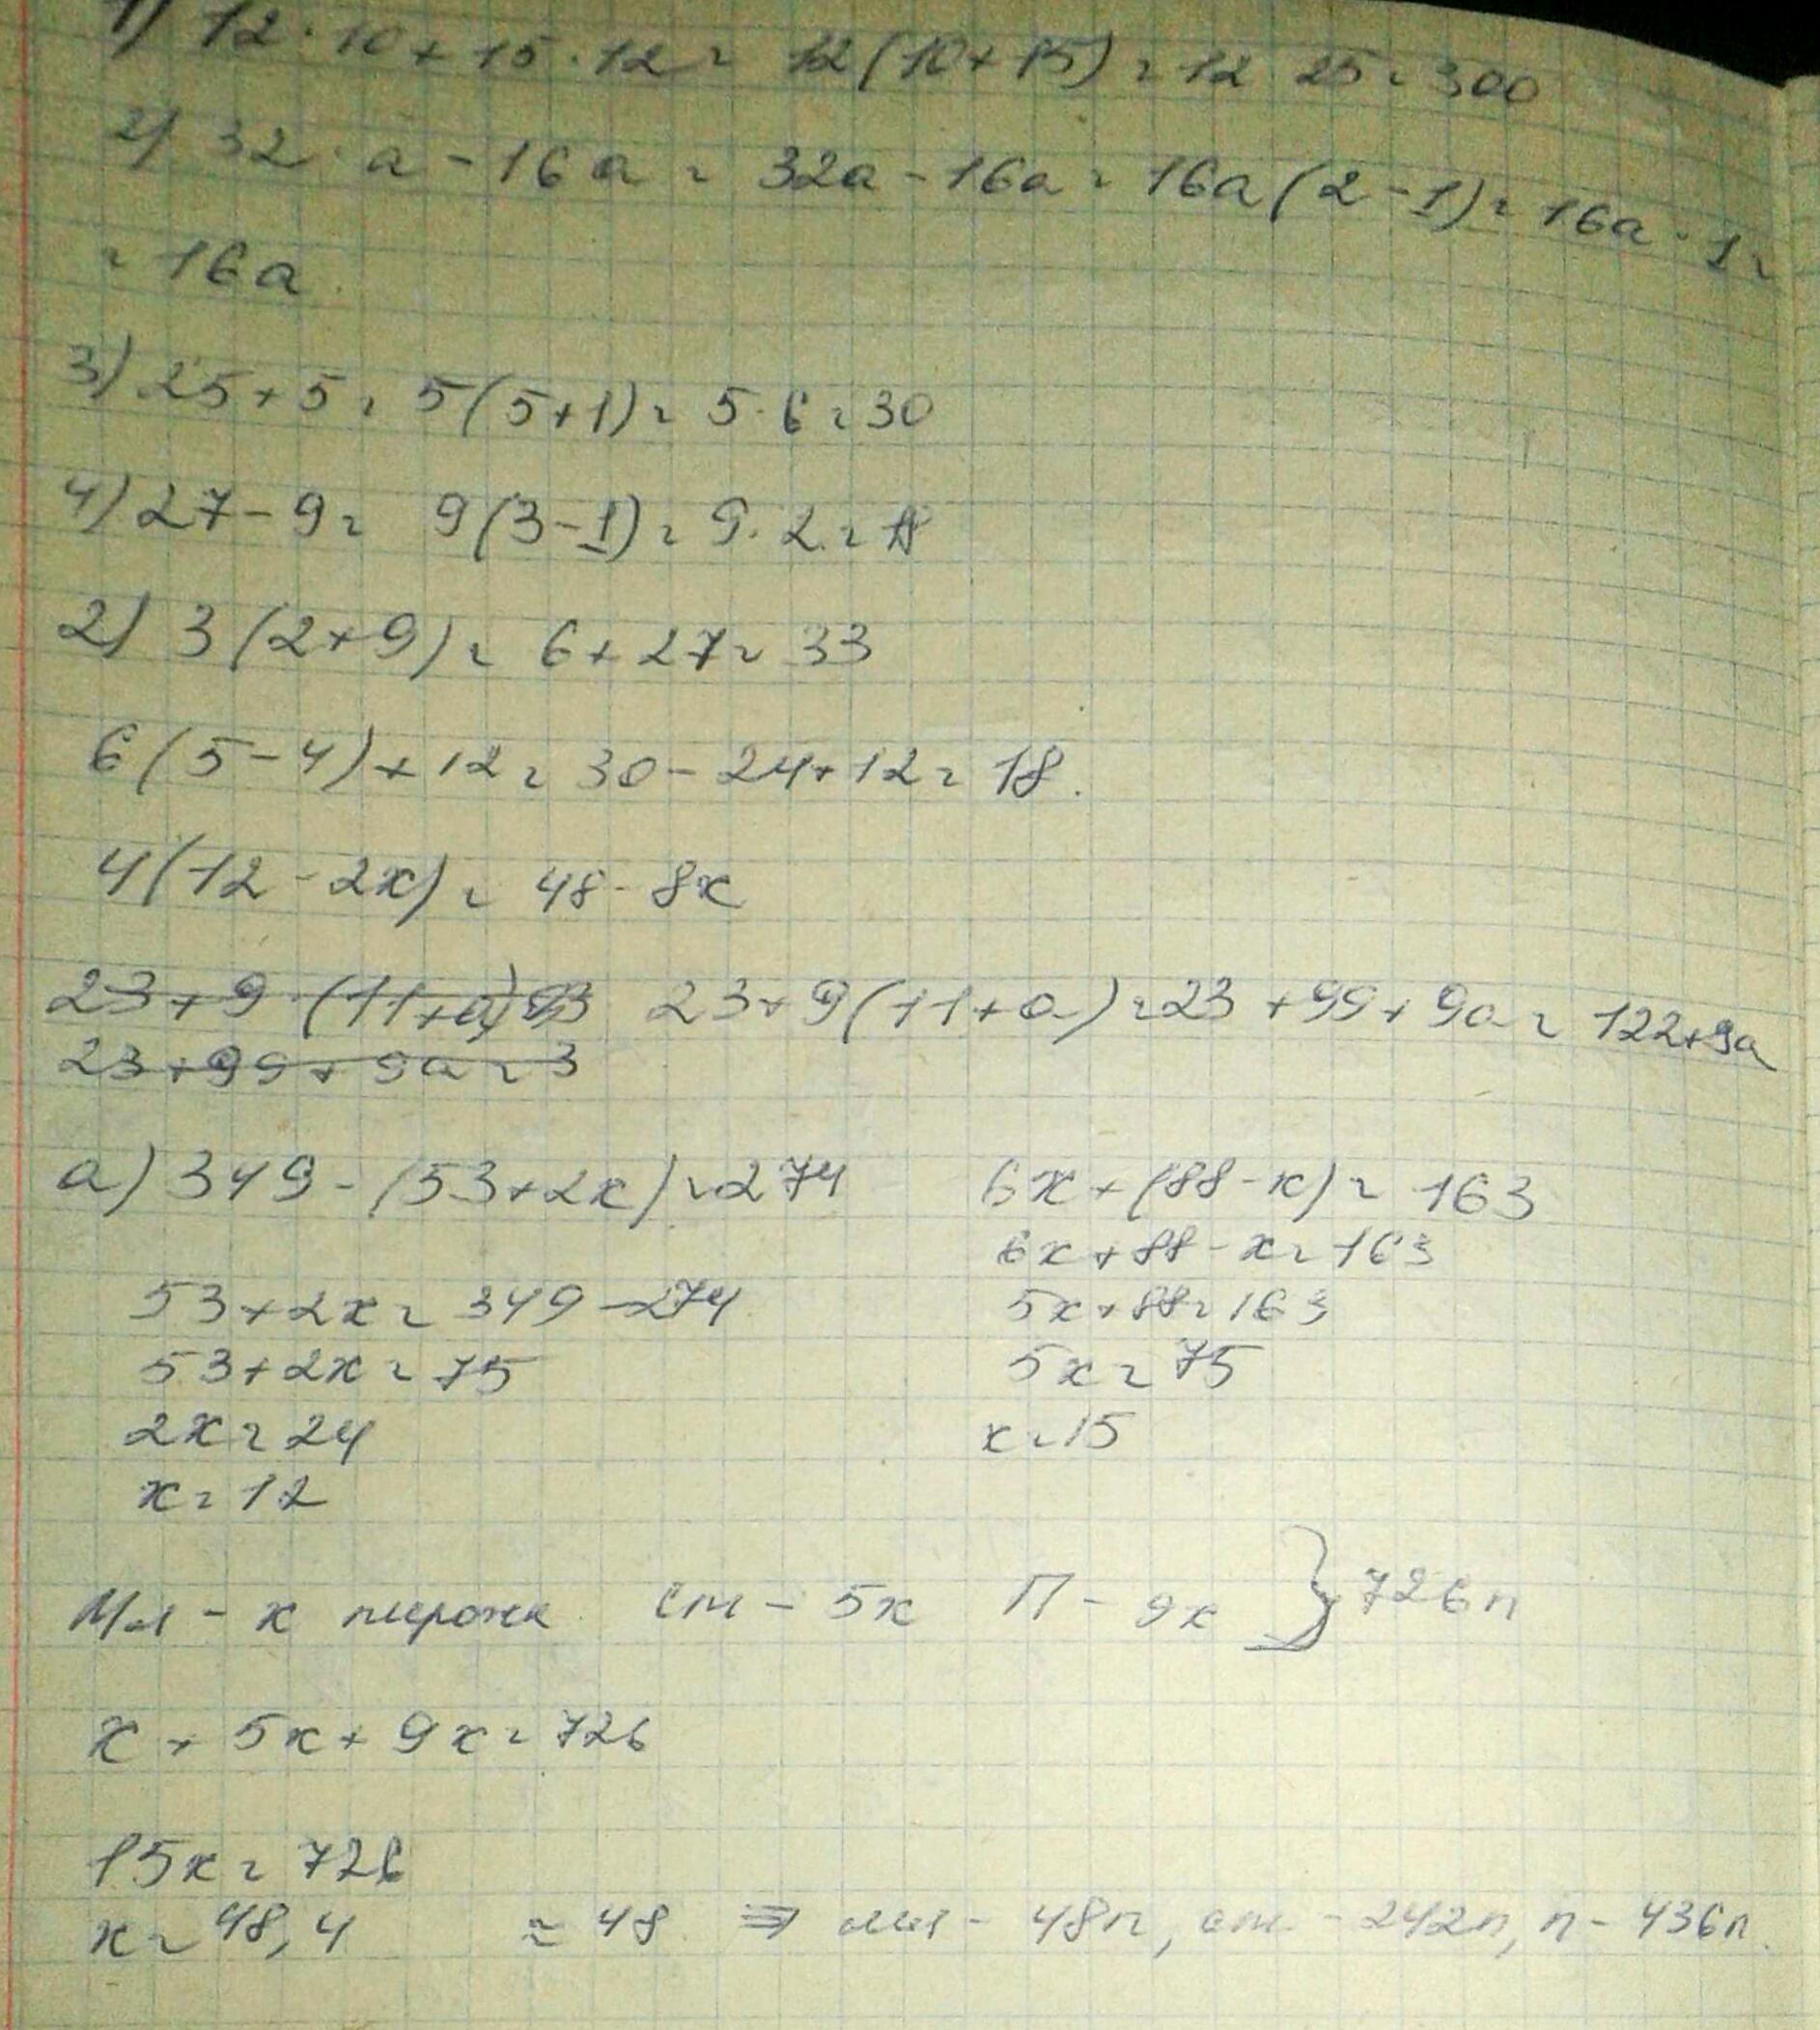 1) 12·10+15·12= 12(10+15)=12 25=300
2) 32·a-16a= 32a-16a=16a(2-1)=16a·1=
=16a.
3) 25+5= 5(5+1)= 5·6=30
4) 27-9= 9(3-1)=9·2=18
2) 3(2+9)= 6+27=33
6(5-4)+12= 30-24+12=18.
4(12-2x)= 48-8x
23+9·(11+a) 23+9(11+a)=23+99+9a=122+9a
23+99+9a=3
а) 349-(53+2x)=274 6x+(88-x)=163
6x+88-x=163
53+2x=349-274 5x+88=163
53+2x=75 5x=75
2x=24 x=15
x=12
Мл - x пирожк Ст - 5x П - 9x } 726п
x+5x+9x=726
15x=726
x=48,4 ≈48 ⇒ мл - 48п, ст - 242п, п - 436п.